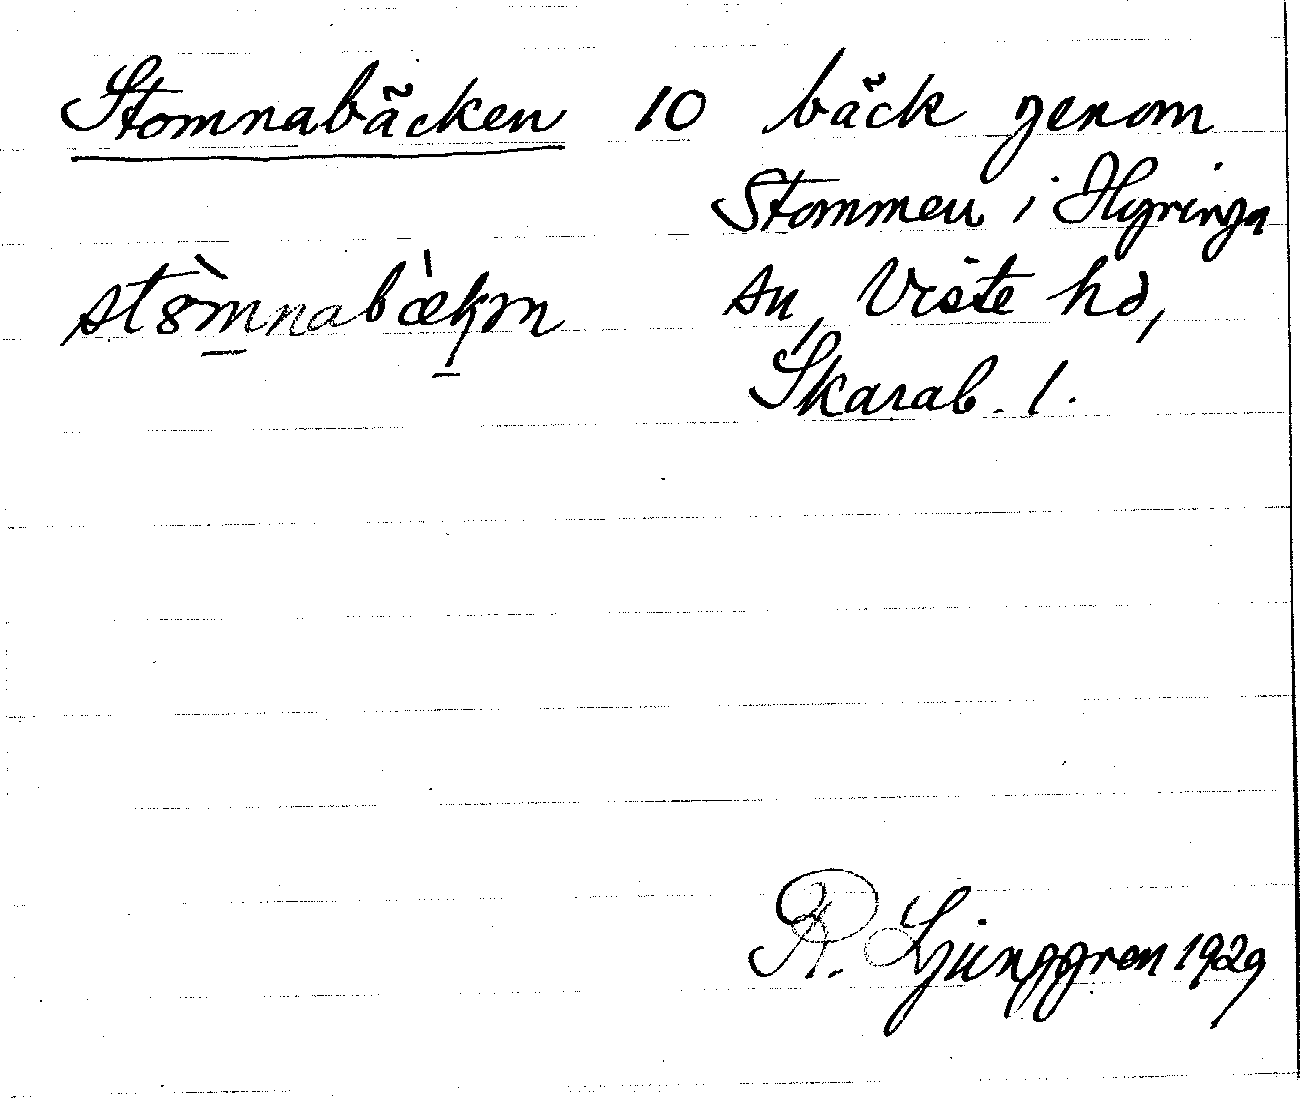 Stomnabäcken 10 bäck genom
Stommen i Hyringa
sn, Viste hd,
Skarab. l.
R. Ljunggren 1929